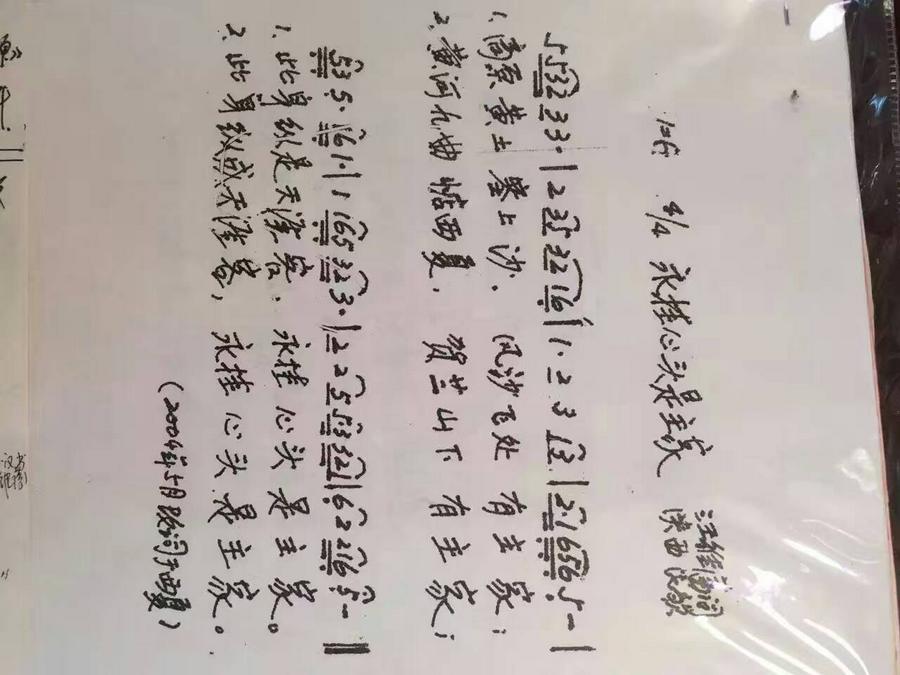 1=G 4/4 永挂心头是主家
汪维藩词
陕西民歌
5 5 5 3 2 3 3 · | 2 2 3 5 3 2 2 1 6 | 1 · 2 3 1 2 · | 2 · 1 6 5 6 5 — |
1. 高原黄土塞上沙, 风沙飞处有主家;
2. 黄河九曲惦西夏, 贺兰山下有主家;
5 3 5 · 1 6 1 · | 1 1 6 5 3 2 3 · | 2 2 5 5 3 3 2 1 | 6 2 2 1 6 5 — ‖
1. 此身纵是天涯客, 永挂心头是主家。
2. 此身纵成天涯客, 永挂心头是主家。
(2004年5月 改词于西夏)